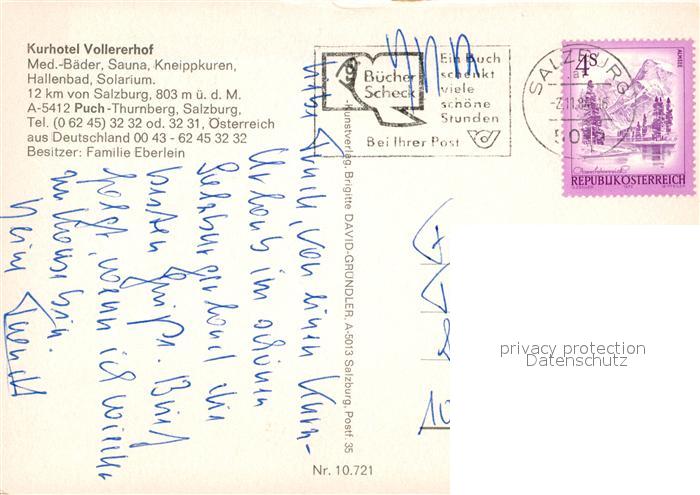 Kurhotel Vollererhof
Med.-Bäder, Sauna, Kneippkuren,
Hallenbad, Solarium.
12 km von Salzburg, 803 m ü. d. M.
A-5412 Puch-Thurnberg, Salzburg,
Tel. (0 62 45) 32 32 od. 32 31, Österreich
aus Deutschland 00 43 - 62 45 32 32
Besitzer: Familie Eberlein
Bücher
Scheck
Ein Buch
schenkt
viele
schöne
Stunden
Bei Ihrer Post
SALZBURG
4S
ALMSEE
REPUBLIK ÖSTERREICH
Kunstverlag: Brigitte DAVID-GRÜNDLER, A-5013 Salzburg, Postf. 35
von einem Kurz-
Urlaub im schönen
Salzburger Land
besten Brief
folgt, wenn ich wieder
zu Hause bin.
Dein
10
Nr. 10.721
privacy protection
Datenschutz